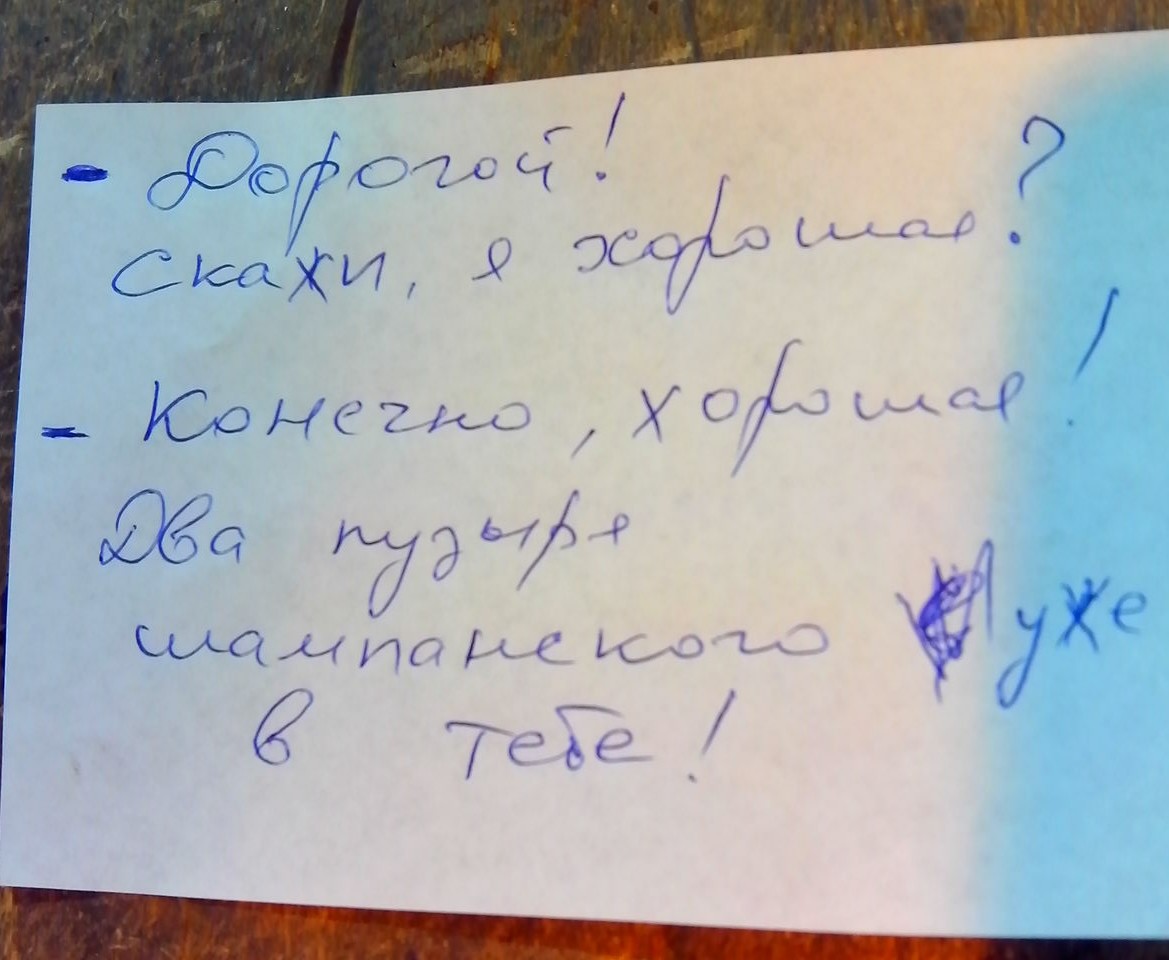 - Дорогой!
Скажи, я хорошая?
- Конечно, хорошая!
Два пузыря
шампанского уже
в тебе!